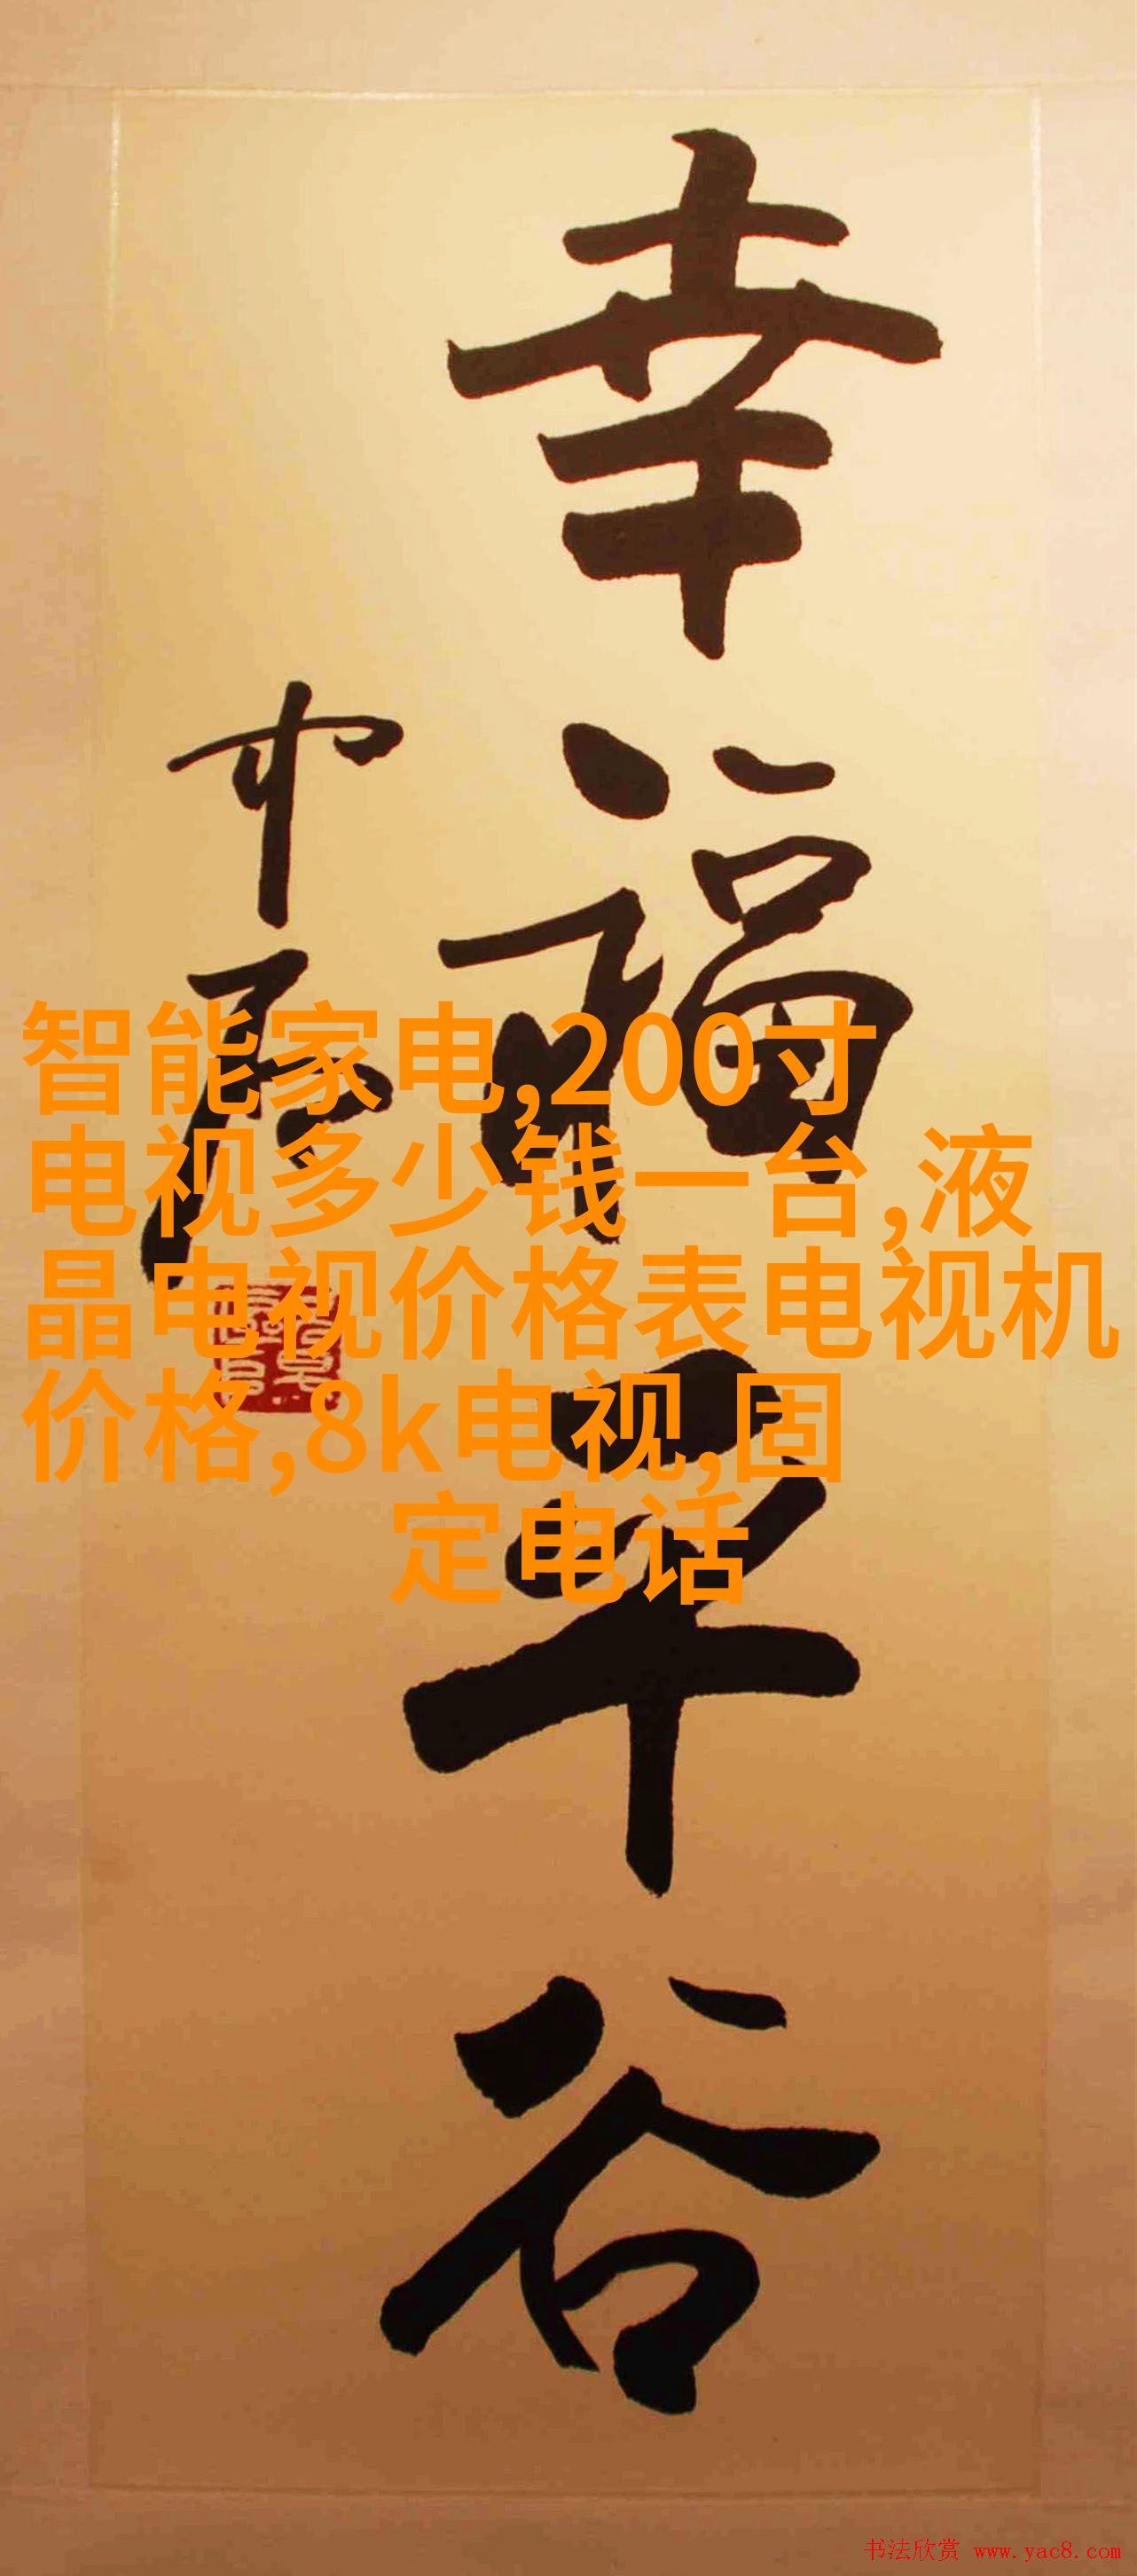 幸福平谷
智能家电,200寸
电视多少钱一台,液
晶电视价格表电视机
价格,8k电视,固
定电话
书法欣赏 www.yac8.com